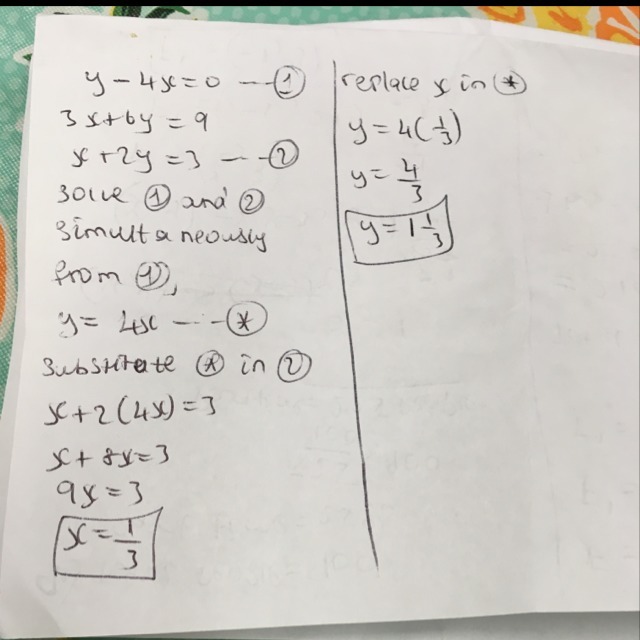 y - 4x = 0 --- ①
3x + 6y = 9
x + 2y = 3 --- ②
solve ① and ②
simultaneously
from ①,
y = 4x --- ⊛
substitate ⊛ in ②
x + 2(4x) = 3
x + 8x = 3
9x = 3
x = 1/3
replace x in ⊛
y = 4(1/3)
y = 4/3
y = 1 1/3